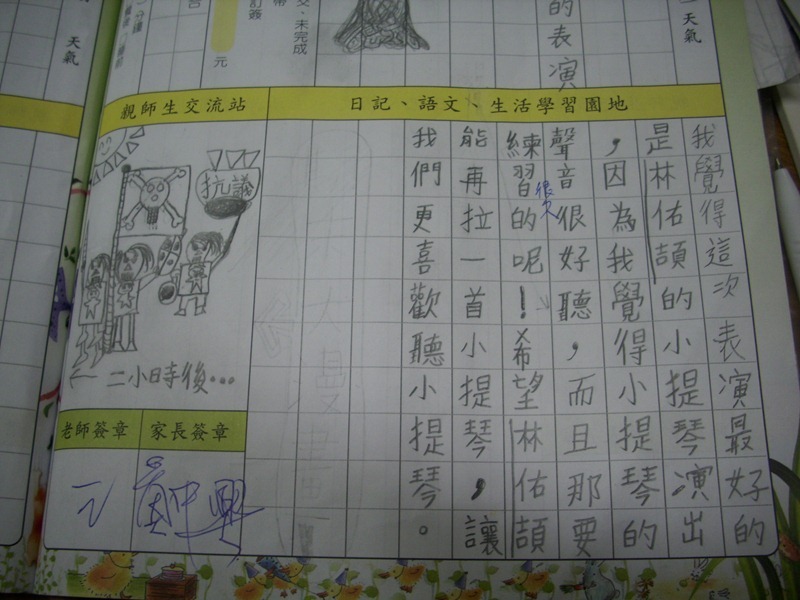 天氣
天氣
的表演
交、未完成
元
日記、語文、生活學習園地
我覺得這次表演最好的
是林佑頡的小提琴演出
，因為我覺得小提琴的
聲音很好聽，而且那要
練習很久的呢！希望林佑頡
能再拉一首小提琴，讓
我們更喜歡聽小提琴。
親師生交流站
抗議
二小時後…
老師簽章
家長簽章